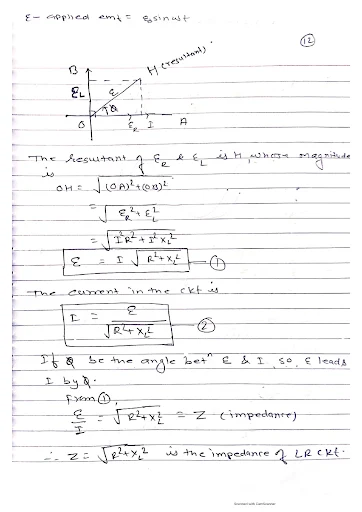 ε - applied emf = ε₀ sin ωt
12
B
H (resultant)
ε_L
ε
φ
O
ε_R
I
A
The resultant of ε_R & ε_L is H, whose magnitude
is
OH = √((OA)²+(OB)²)
= √(ε_R² + ε_L²)
= √(I²R² + I²X_L²)
ε = I √(R²+X_L²) — ①
The current in the ckt is
I = ε / √(R²+X_L²) — ②
If φ be the angle betⁿ ε & I, so, ε leads
I by φ.
From ①,
ε/I = √(R²+X_L²) = Z (impedance)
∴ Z = √(R²+X_L²) is the impedance of LR ckt.
Scanned with CamScanner